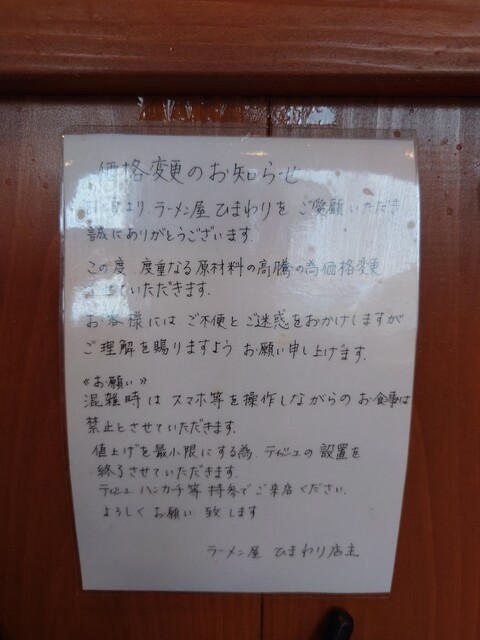 価格変更のお知らせ
日頃より ラーメン屋 ひまわりを ご愛顧いただき
誠にありがとうございます。
この度 度重なる原材料の高騰の為価格変更
ていただきます。
お客様には ご不便と ご迷惑をおかけしますが
ご理解を賜りますよう お願い申し上げます。
《お願い》
混雑時は スマホ等を操作しながらの お食事は
禁止とさせていただきます。
値上げを最小限にする為 ティッシュの設置を
終了させていただきます。
ティッシュ ハンカチ等 持参でご来店ください。
よろしく お願い 致します
ラーメン屋 ひまわり店主